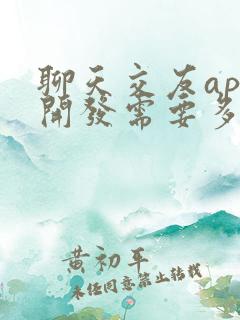 聊天交友ap
開發需要多
黄初平
未经同意禁止转载